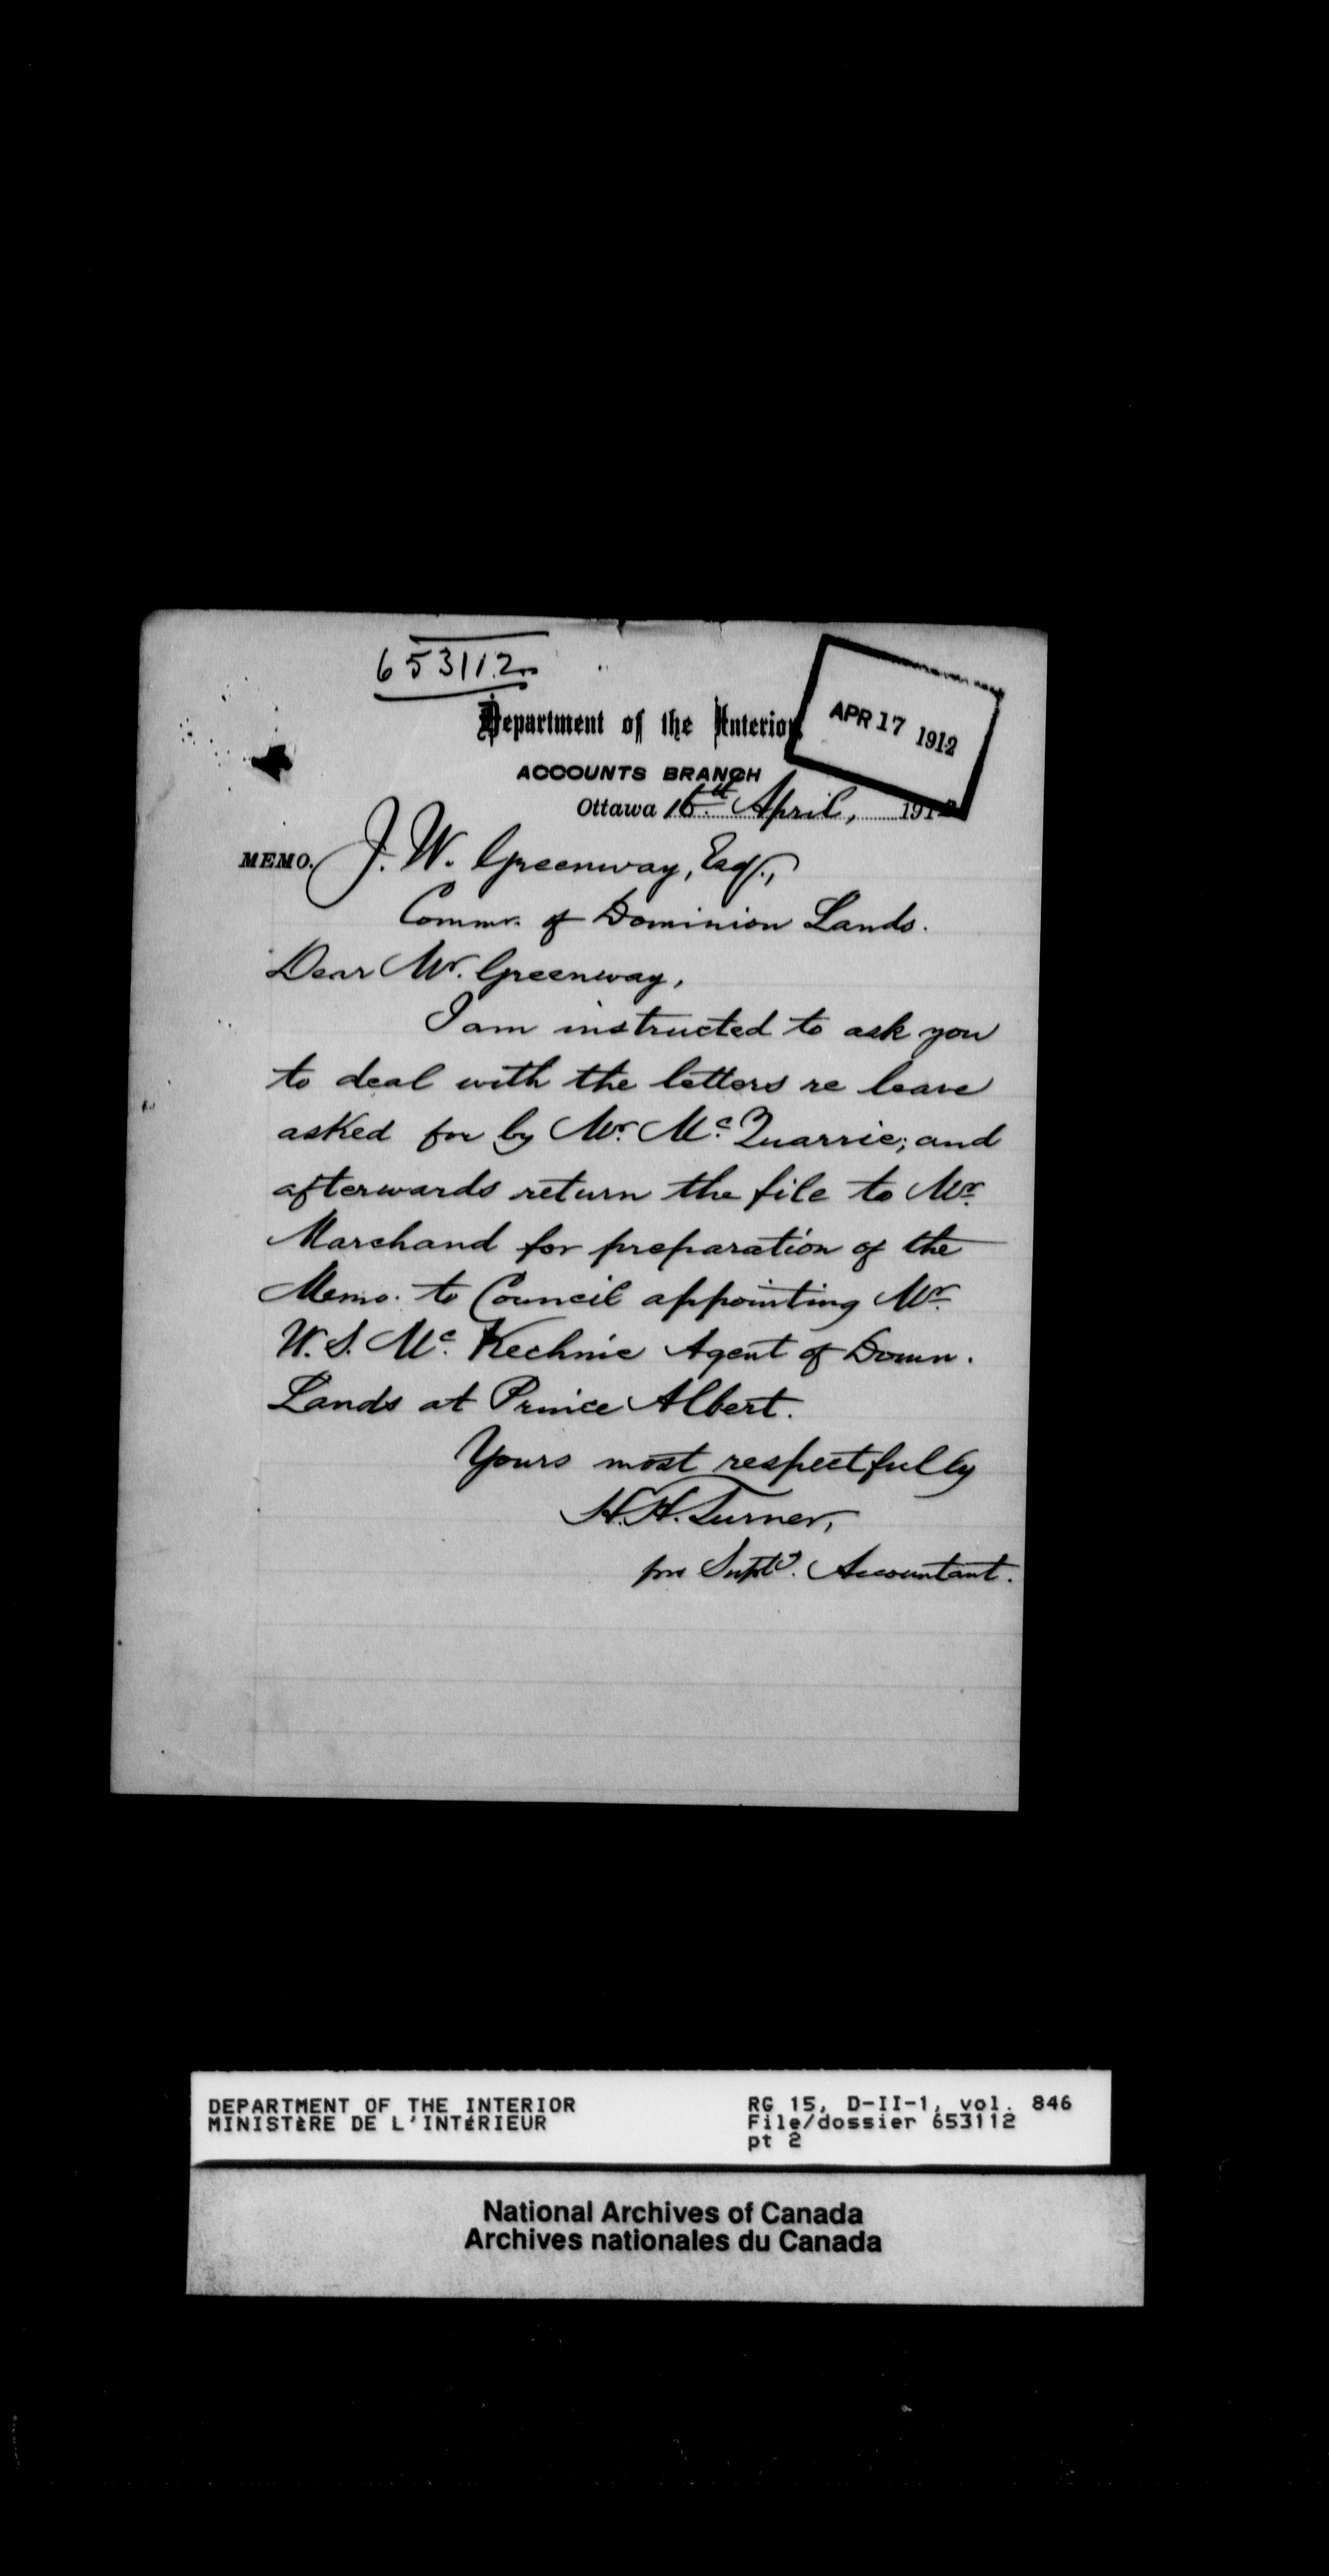 653112
Department of the Interior
APR 17 1912
ACCOUNTS BRANCH
Ottawa 16th April, 1912
MEMO. J. W. Greenway, Esq.,
Commr. of Dominion Lands.
Dear Mr. Greenway,
I am instructed to ask you
to deal with the letters re leave
asked for by Mr. McQuarrie; and
afterwards return the file to Mr.
Marchand for preparation of the
Memo. to Council appointing Mr.
W. S. McKechnie Agent of Domn.
Lands at Prince Albert.
Yours most respectfully
H. H. Turner,
pro Supt. Accountant.
DEPARTMENT OF THE INTERIOR RG 15, D-II-1, vol. 846
MINISTÈRE DE L'INTÉRIEUR File/dossier 653112
pt 2
National Archives of Canada
Archives nationales du Canada